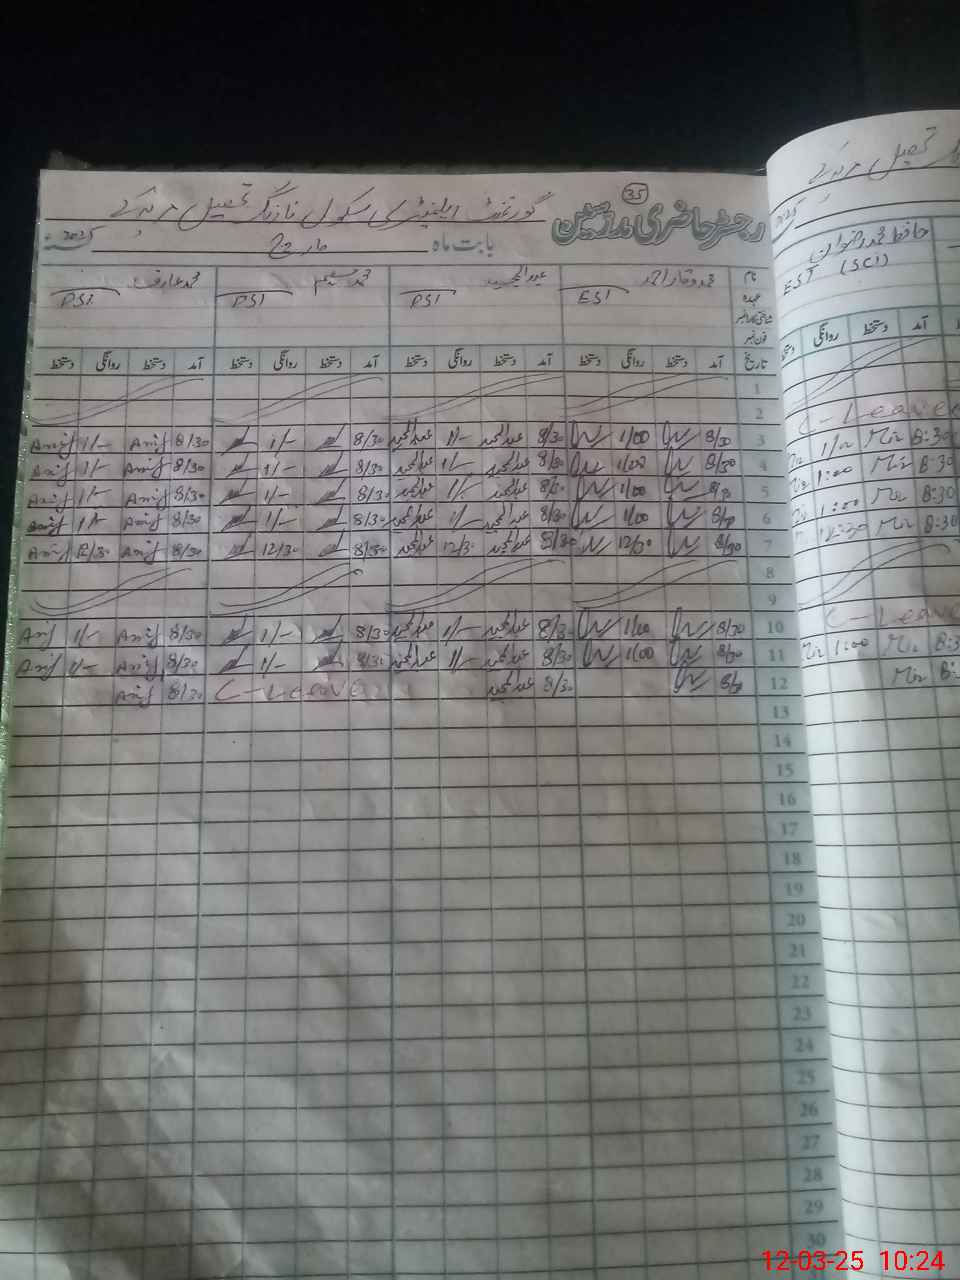 35
رجسٹر حاضری مدرسین گورنمنٹ ایلیمنٹری سکول نازنگ تحصیل مریدکے
بابت ماہ مارچ 2025
نام محمد وقار احمد عبدالمجید محمد نسیم محمد عارف
عہدہ EST PST PST PST
شناختی کارڈ نمبر
فون نمبر
تاریخ آمد دستخط روانگی دستخط آمد دستخط روانگی دستخط آمد دستخط روانگی دستخط آمد دستخط روانگی دستخط
1
2
3 8/30 1/00 8/30 عبدالمجید 1/- عبدالمجید 8/30 1/- 8/30 Arif 1/- Arif
4 8/30 1/00 8/30 عبدالمجید 1/- عبدالمجید 8/30 1/- 8/30 Arif 1/- Arif
5 8/30 1/00 8/30 عبدالمجید 1/- عبدالمجید 8/30 1/- 8/30 Arif 1/- Arif
6 8/30 1/00 8/30 عبدالمجید 1/- عبدالمجید 8/30 1/- 8/30 Arif 1/- Arif
7 8/30 12/30 8/30 عبدالمجید 12/3. عبدالمجید 8/30 12/30 8/30 Arif 12/30 Arif
8
9
10 8/30 1/00 8/30 عبدالمجید 1/- عبدالمجید 8/30 1/- 8/30 Arif 1/- Arif
11 8/30 1/00 8/30 عبدالمجید 1/- عبدالمجید 8/30 1/- 8/30 Arif 1/- Arif
12 8/30 8/30 عبدالمجید C-Leave 8/30 Arif
13
14
15
16
17
18
19
20
21
22
23
24
25
26
27
28
29
30
تحصیل مریدکے
2025
حافظ محمد رضوان
EST (SCI)
آمد دستخط روانگی دستخط
C-Leave
8:30 Mir 1/00 Mir
8:30 Mir 1:00 Mir
8:30 Mir 1:00
8:30 Mir 12:30
C-Leave
Mir 1:00 Mir
Mir
12-03-25 10:24